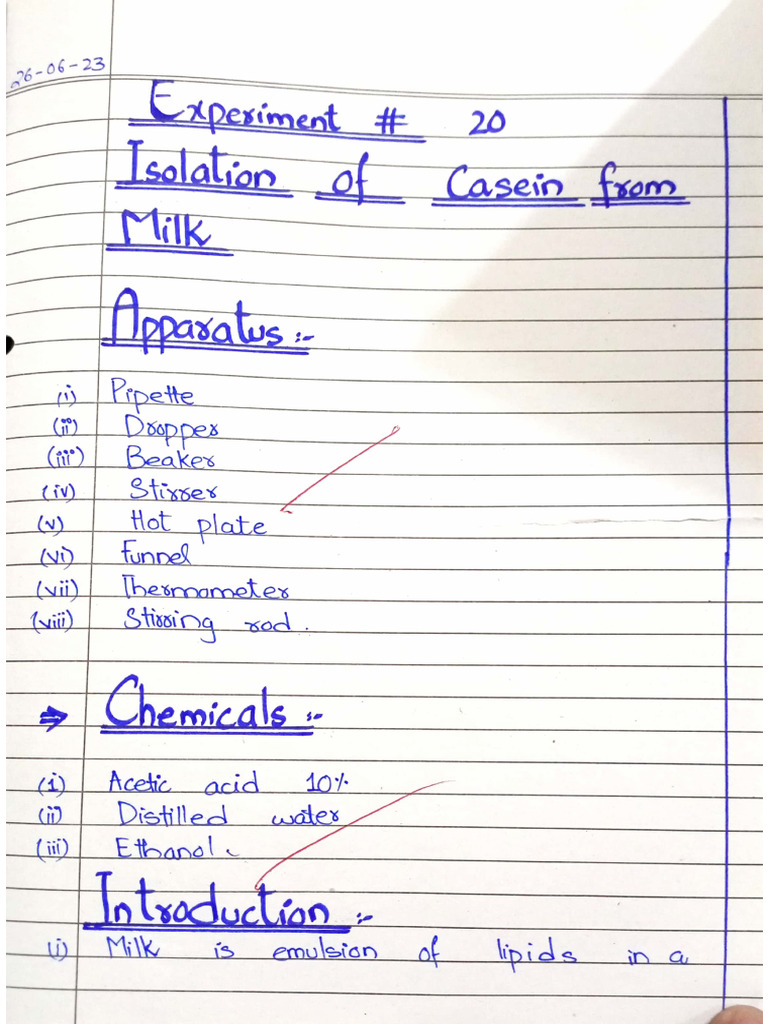 26-06-23
Experiment # 20
Isolation of Casein from
Milk
Apparatus :-
(i) Pipette
(ii) Dropper
(iii) Beaker
(iv) Stirrer
(v) Hot plate
(vi) Funnel
(vii) Thermometer
(viii) Stirring rod.
⇒ Chemicals :-
(i) Acetic acid 10%
(ii) Distilled water
(iii) Ethanol.
Introduction :-
(i) Milk is emulsion of lipids in a